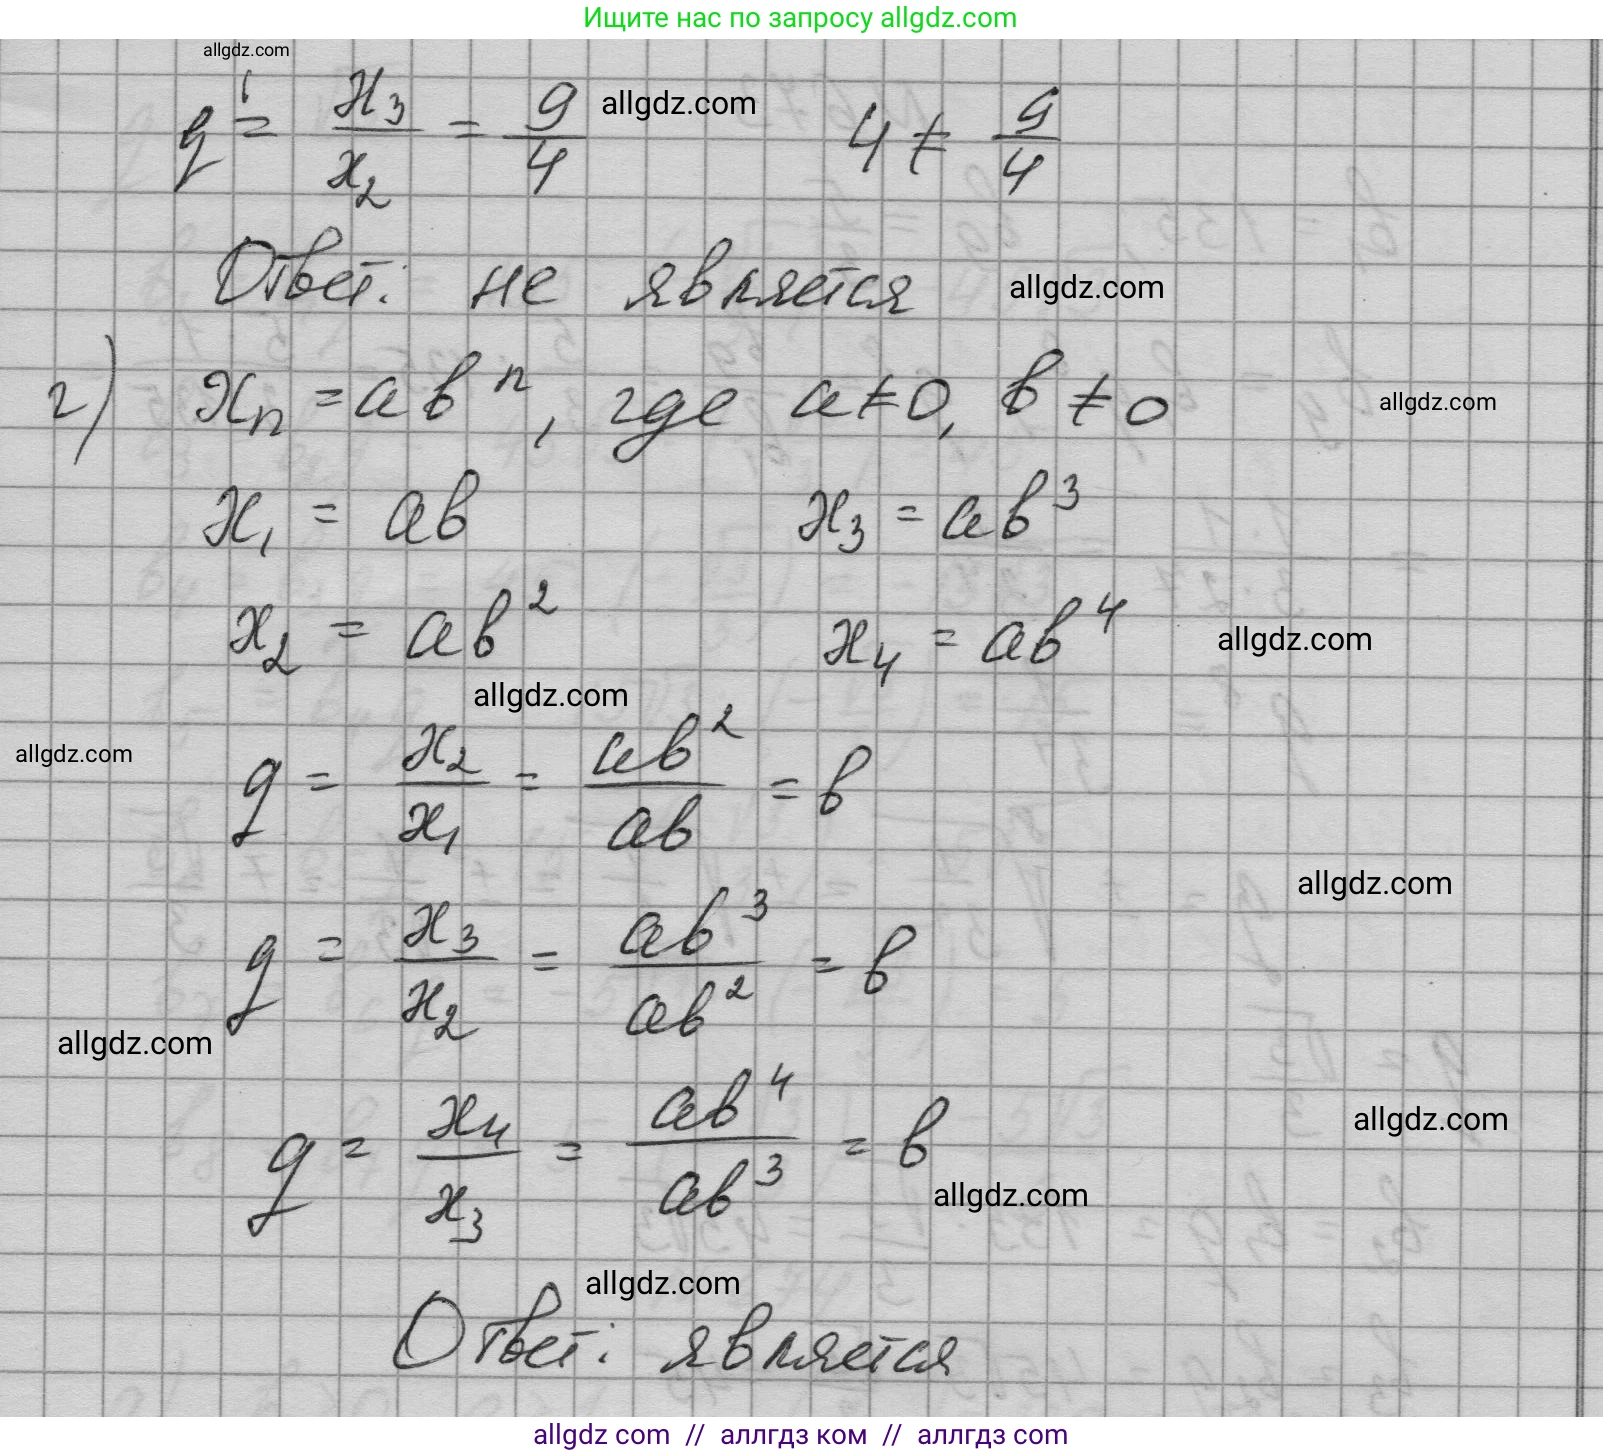 Ищите нас по запросу allgdz.com
allgdz.com
q = x₃/x₂ = 9/4 allgdz.com 4 ≠ 9/4
Ответ: не является allgdz.com
г) xₙ = abⁿ, где a≠0, b ≠ 0 allgdz.com
x₁ = ab x₃ = ab³
x₂ = ab² x₄ = ab⁴ allgdz.com
allgdz.com
allgdz.com q = x₂/x₁ = ab²/ab = b
allgdz.com
q = x₃/x₂ = ab³/ab² = b
allgdz.com
q = x₄/x₃ = ab⁴/ab³ = b allgdz.com
allgdz.com
allgdz.com
Ответ: является
allgdz com // аллгдз ком // аллгдз com